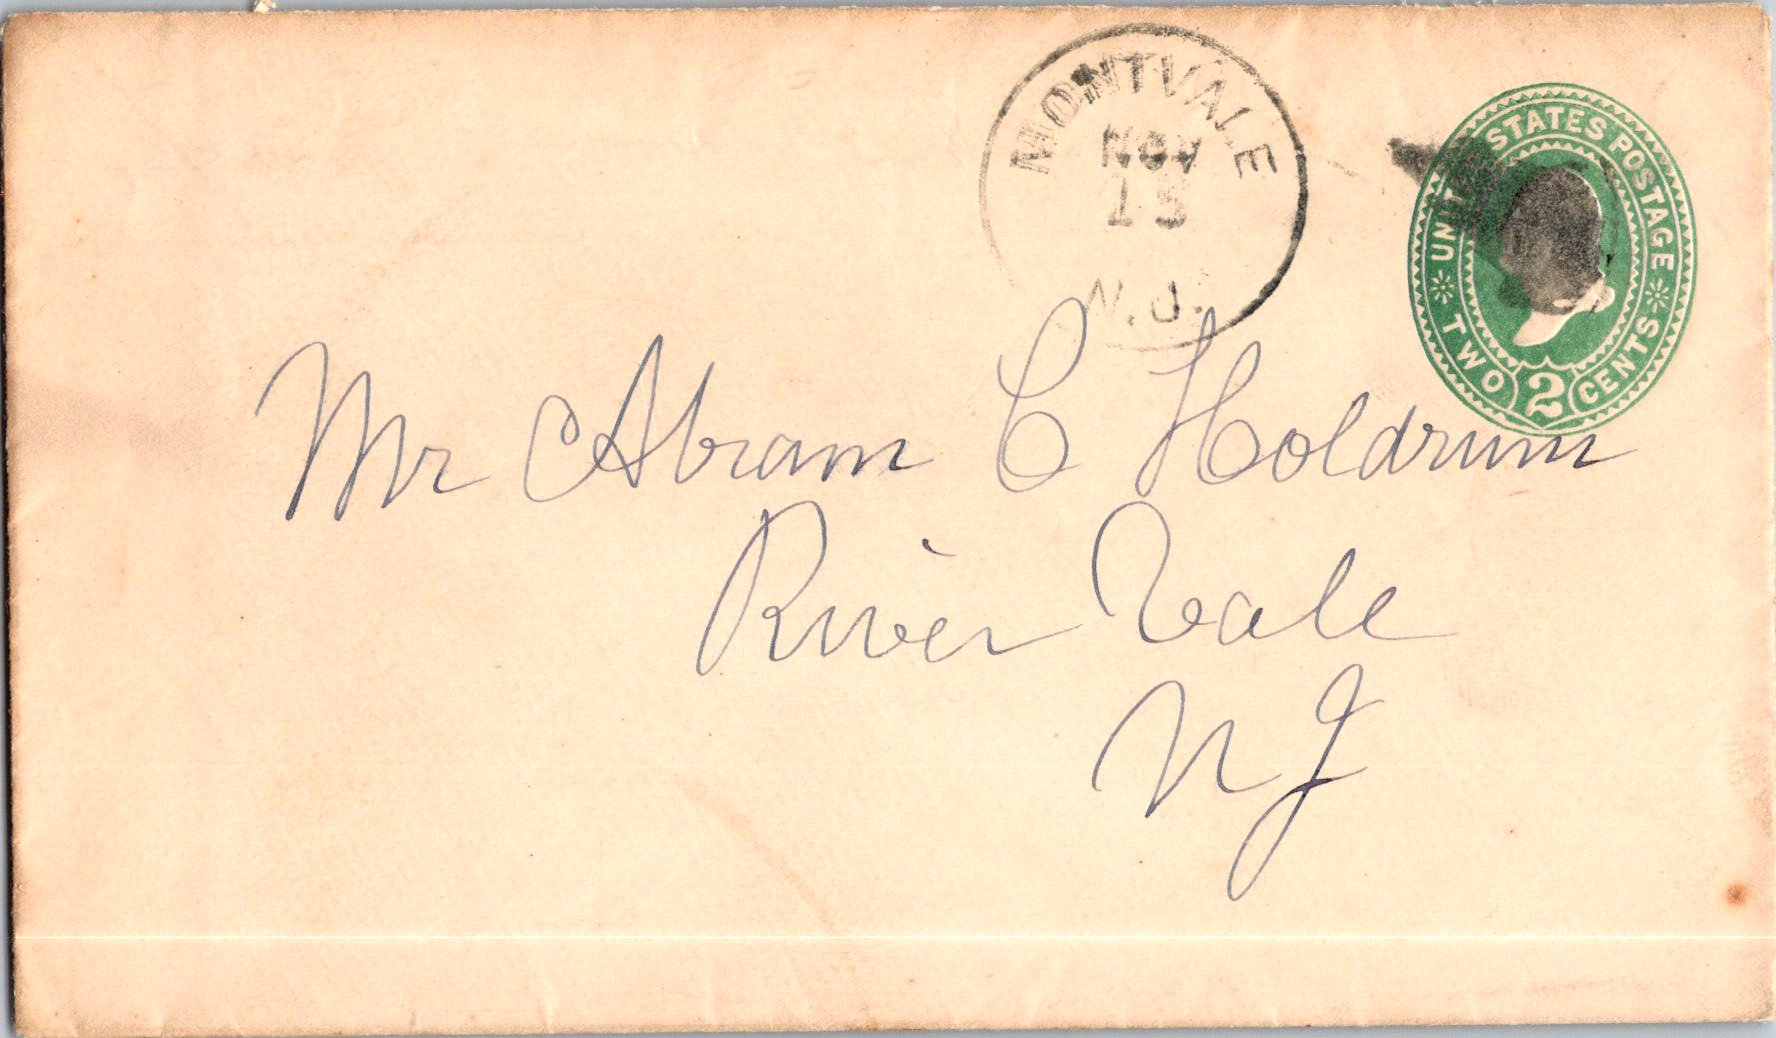 MONTVALE
NOV
15
N.J.
UNITED STATES POSTAGE
TWO 2 CENTS
Mr Abram C Holdrum
River Vale
N J